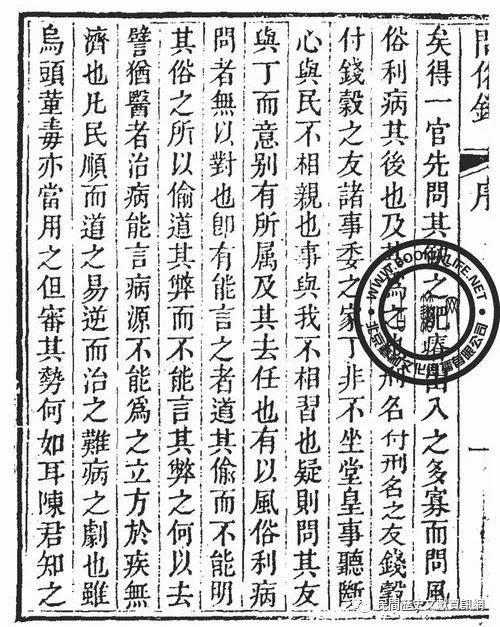 問俗錄 序 一
矣得一官先問其之肥瘠出入之多寡而問風
俗利病其後也及其為之也刑名付刑名之友錢穀
付錢穀之友諸事委之家丁非不坐堂皇事聽斷
心與民不相親也事與我不相習也疑則問其友
與丁而意别有所属及其去任也有以風俗利病
問者無以對也卽有能言之者道其偷而不能明
其俗之所以偷道其弊而不能言其弊之何以去
譬猶醫者治病能言病源不能為之立方於疾無
濟也凡民順而道之易逆而治之難病之劇也雖
烏頭堇毒亦當用之但審其勢何如耳陳君知之
WWW.BOOKINLIFE.NET
民間歷史文獻資訊網